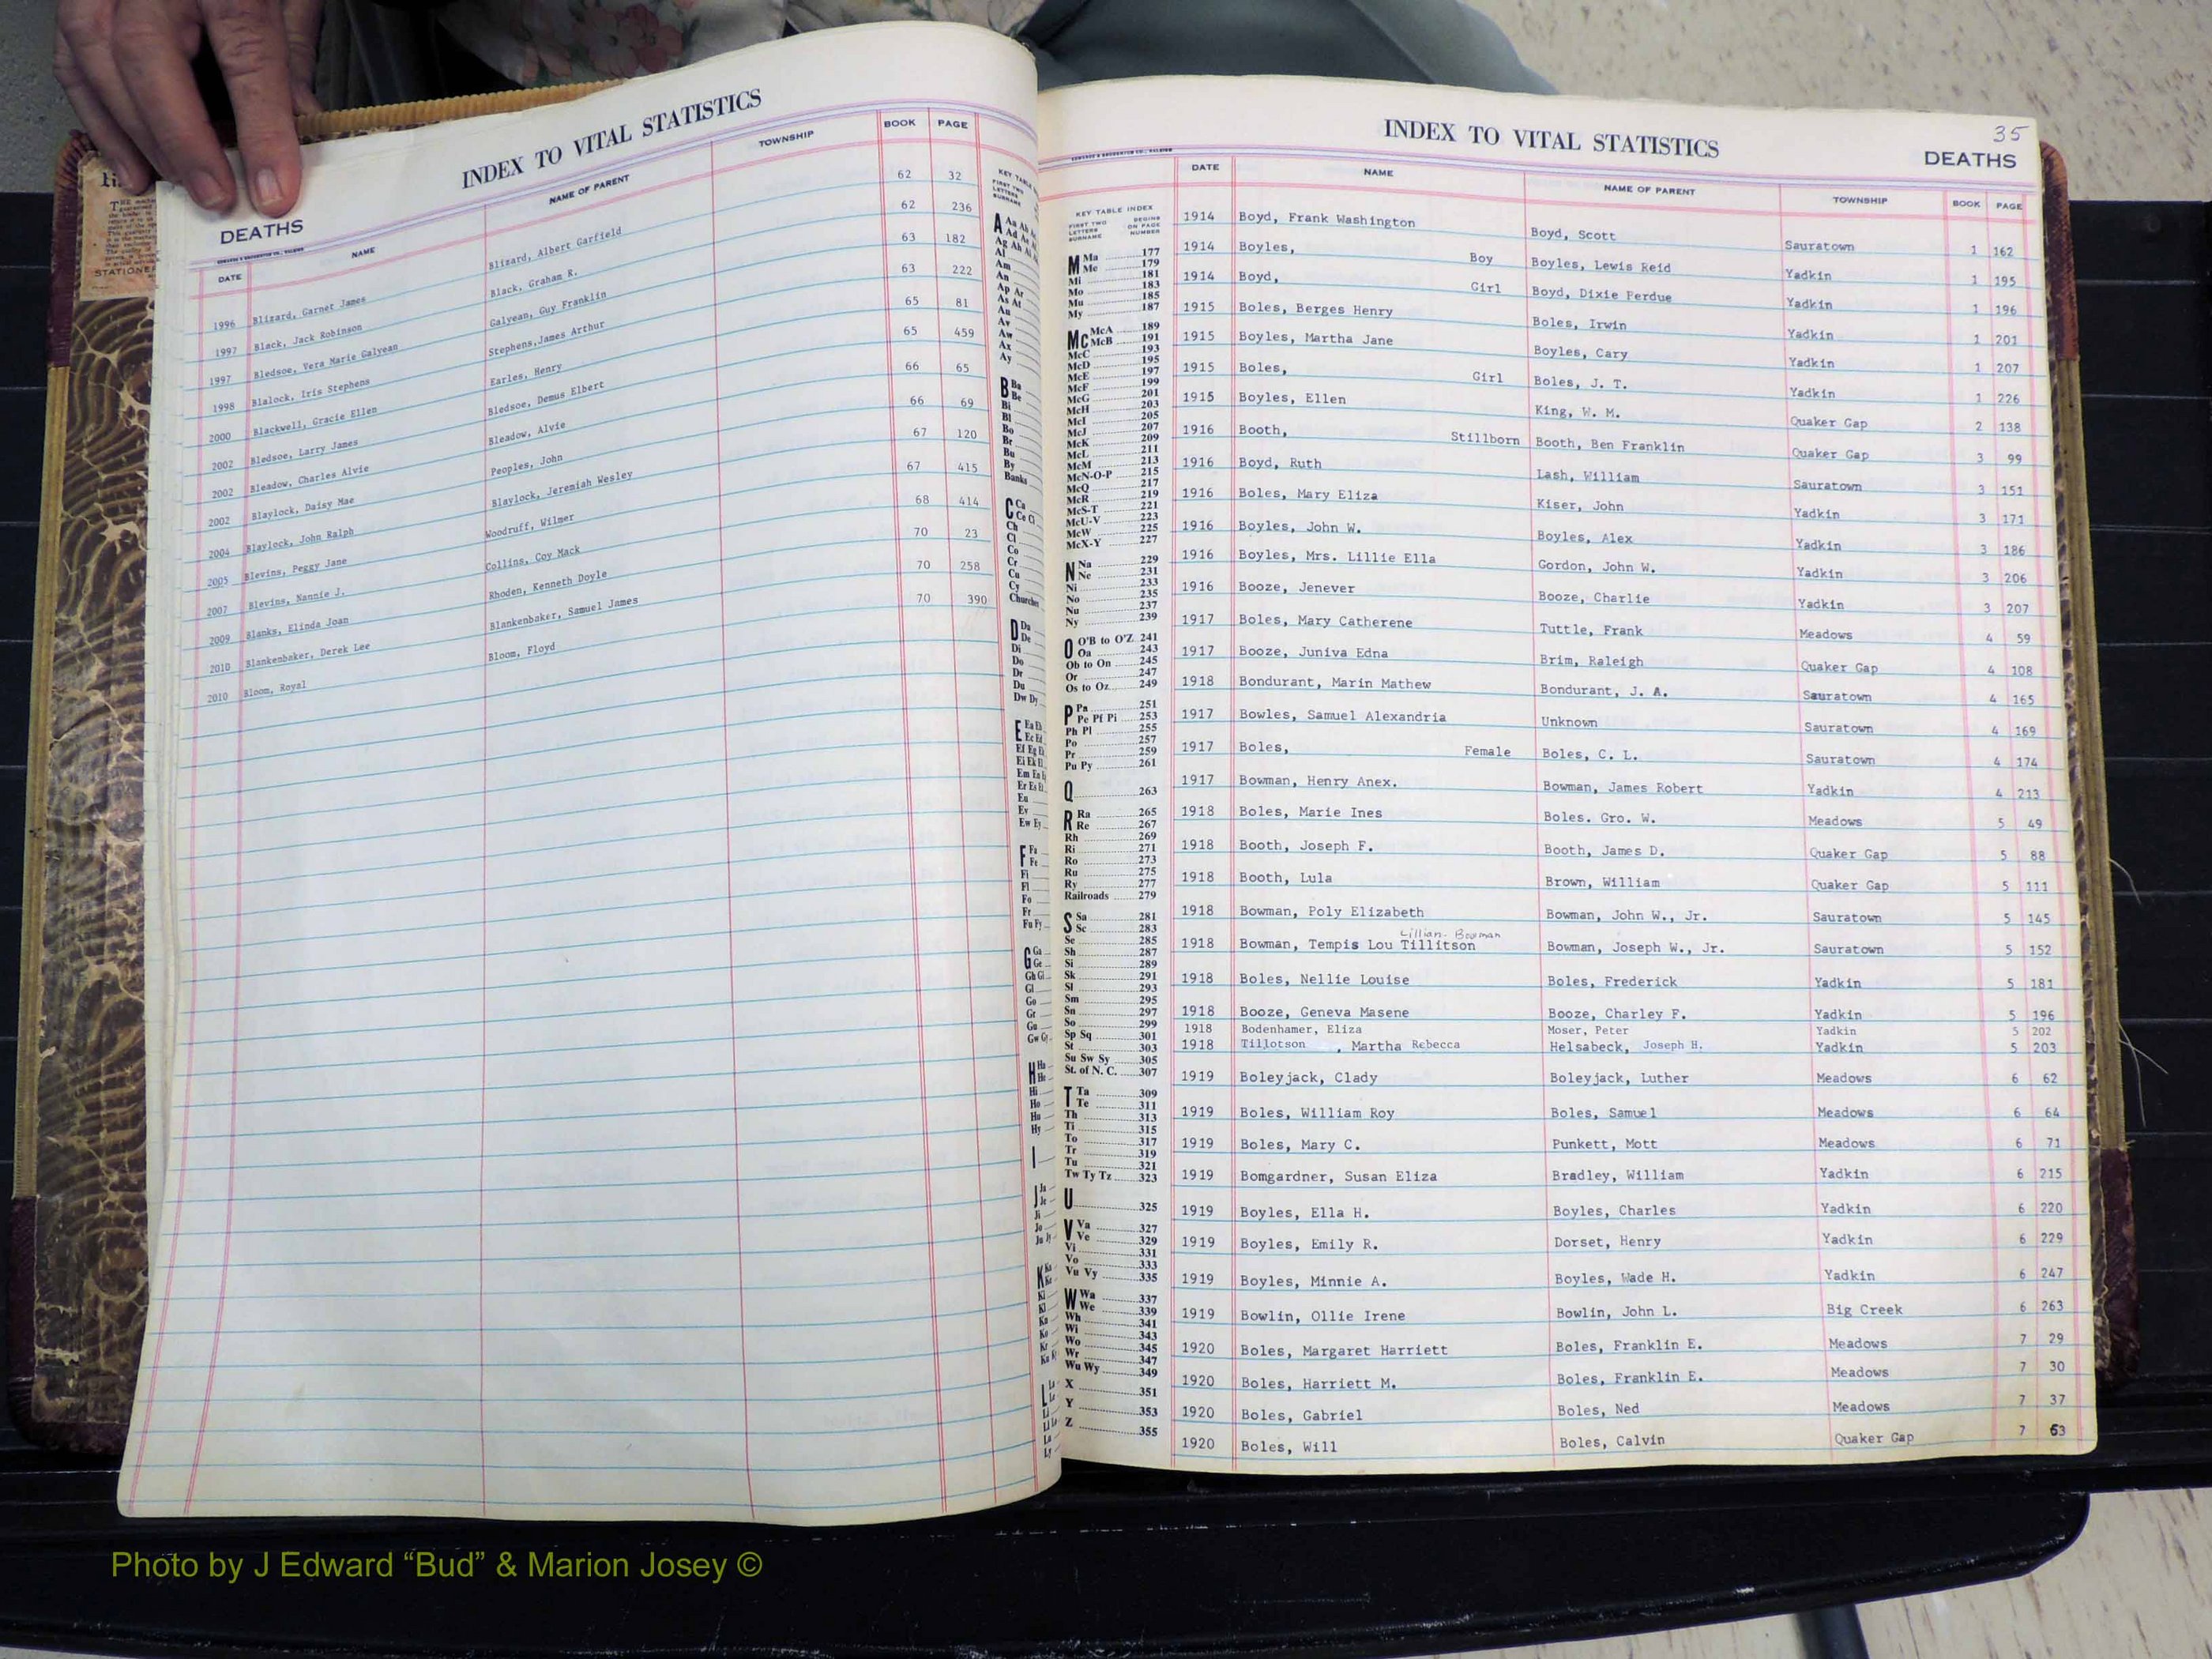 INDEX TO VITAL STATISTICS
DEATHS
DATE NAME NAME OF PARENT TOWNSHIP BOOK PAGE
1996 Blizard, Garnet James Blizard, Albert Garfield 62 32
1997 Black, Jack Robinson Black, Graham R. 62 236
1997 Bledsoe, Vera Marie Galyean Galyean, Guy Franklin 63 182
1998 Blalock, Iris Stephens Stephens,James Arthur 63 222
2000 Blackwell, Gracie Ellen Earles, Henry 65 81
2002 Bledsoe, Larry James Bledsoe, Demus Elbert 65 459
2002 Bleadow, Charles Alvie Bleadow, Alvie 66 65
2002 Blaylock, Daisy Mae Peoples, John 66 69
2004 Blaylock, John Ralph Blaylock, Jeremiah Wesley 67 120
2005 Blevins, Peggy Jane Woodruff, Wilmer 67 415
2007 Blevins, Nannie J. Collins, Coy Mack 68 414
2009 Blanks, Elinda Joan Rhoden, Kenneth Doyle 70 23
2010 Blankenbaker, Derek Lee Blankenbaker, Samuel James 70 258
2010 Bloom, Royal Bloom, Floyd 70 390
35
INDEX TO VITAL STATISTICS
DEATHS
KEY TABLE INDEX
FIRST TWO LETTERS SURNAME BEGINS ON PAGE NUMBER
M Ma 177
Me 179
Mi 181
Mo 183
Mu 185
My 187
Mc McA 189
McB 191
McC 193
McD 195
McE 197
McF 199
McG 201
McH 203
McI 205
McJ 207
McK 209
McL 211
McM 213
McN-O-P 215
McQ 217
McR 219
McS-T 221
McU-V 223
McW 225
McX-Y 227
N Na 229
Ne 231
Ni 233
No 235
Nu 237
Ny 239
O O'B to O'Z 241
Oa 243
Ob to On 245
Or 247
Os to Oz 249
P Pa 251
Pe Pf Pi 253
Ph Pl 255
Po 257
Pr 259
Pu Py 261
Q 263
R Ra 265
Re 267
Rh 269
Ri 271
Ro 273
Ru 275
Ry 277
Railroads 279
S Sa 281
Sc 283
Se 285
Sh 287
Si 289
Sk 291
Sl 293
Sm 295
Sn 297
So 299
Sp Sq 301
St 303
Su Sw Sy 305
St. of N. C. 307
T Ta 309
Te 311
Th 313
Ti 315
To 317
Tr 319
Tu 321
Tw Ty Tz 323
U 325
V Va 327
Ve 329
Vi 331
Vo 333
Vu Vy 335
W Wa 337
We 339
Wh 341
Wi 343
Wo 345
Wr 347
Wu Wy 349
X 351
Y 353
Z 355
DATE NAME NAME OF PARENT TOWNSHIP BOOK PAGE
1914 Boyd, Frank Washington Boyd, Scott Sauratown 1 162
1914 Boyles, Boy Boyles, Lewis Reid Yadkin 1 195
1914 Boyd, Girl Boyd, Dixie Perdue Yadkin 1 196
1915 Boles, Berges Henry Boles, Irwin Yadkin 1 201
1915 Boyles, Martha Jane Boyles, Cary Yadkin 1 207
1915 Boles, Girl Boles, J. T. Yadkin 1 226
1915 Boyles, Ellen King, W. M. Quaker Gap 2 138
1916 Booth, Stillborn Booth, Ben Franklin Quaker Gap 3 99
1916 Boyd, Ruth Lash, William Sauratown 3 151
1916 Boles, Mary Eliza Kiser, John Yadkin 3 171
1916 Boyles, John W. Boyles, Alex Yadkin 3 186
1916 Boyles, Mrs. Lillie Ella Gordon, John W. Yadkin 3 206
1916 Booze, Jenever Booze, Charlie Yadkin 3 207
1917 Boles, Mary Catherene Tuttle, Frank Meadows 4 59
1917 Booze, Juniva Edna Brim, Raleigh Quaker Gap 4 108
1918 Bondurant, Marin Mathew Bondurant, J. A. Sauratown 4 165
1917 Bowles, Samuel Alexandria Unknown Sauratown 4 169
1917 Boles, Female Boles, C. L. Sauratown 4 174
1917 Bowman, Henry Anex. Bowman, James Robert Yadkin 4 213
1918 Boles, Marie Ines Boles. Gro. W. Meadows 5 49
1918 Booth, Joseph F. Booth, James D. Quaker Gap 5 88
1918 Booth, Lula Brown, William Quaker Gap 5 111
1918 Bowman, Poly Elizabeth Bowman, John W., Jr. Sauratown 5 145
Lillian Bowman
1918 Bowman, Tempis Lou Tillitson Bowman, Joseph W., Jr. Sauratown 5 152
1918 Boles, Nellie Louise Boles, Frederick Yadkin 5 181
1918 Booze, Geneva Masene Booze, Charley F. Yadkin 5 196
1918 Bodenhamer, Eliza Moser, Peter Yadkin 5 202
1918 Tillotson , Martha Rebecca Helsabeck, Joseph H. Yadkin 5 203
1919 Boleyjack, Clady Boleyjack, Luther Meadows 6 62
1919 Boles, William Roy Boles, Samuel Meadows 6 64
1919 Boles, Mary C. Punkett, Mott Meadows 6 71
1919 Bomgardner, Susan Eliza Bradley, William Yadkin 6 215
1919 Boyles, Ella H. Boyles, Charles Yadkin 6 220
1919 Boyles, Emily R. Dorset, Henry Yadkin 6 229
1919 Boyles, Minnie A. Boyles, Wade H. Yadkin 6 247
1919 Bowlin, Ollie Irene Bowlin, John L. Big Creek 6 263
1920 Boles, Margaret Harriett Boles, Franklin E. Meadows 7 29
1920 Boles, Harriett M. Boles, Franklin E. Meadows 7 30
1920 Boles, Gabriel Boles, Ned Meadows 7 37
1920 Boles, Will Boles, Calvin Quaker Gap 7 63
Photo by J Edward “Bud” & Marion Josey ©